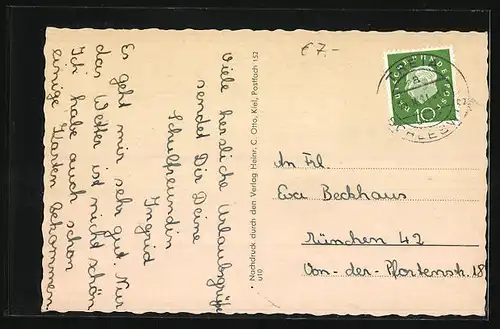 Viele herzliche Urlaubsgrüße
sendet Dir Deine
Schulfreundin
Ingrid
Es geht mir sehr gut. Nur
das Wetter ist nicht schön
Ich habe auch schon
einige Karten bekommen.
Nachdruck durch den Verlag Heinr. C. Otto, Kiel, Postfach 152
U10
€7.-
DEUTSCHE BUNDESPOST
10
An Frl.
Eva Beckhaus
München 42
Von-der-Pfortenstr. 18